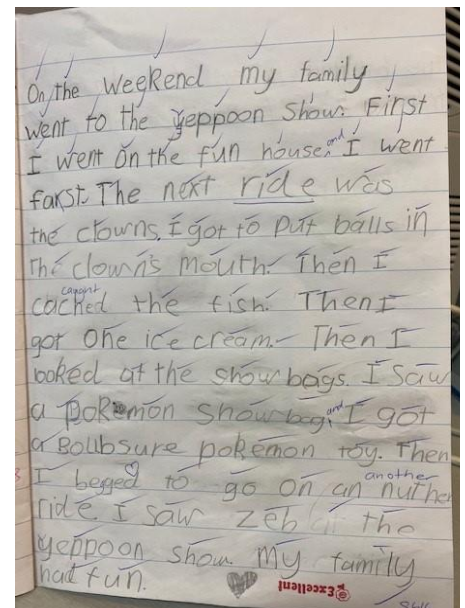 On the weekend my family
went to the yeppoon show. First
I went on the fun house. and I went
farst. The next ride was
the clowns. I got to put balls in
The clown's mouth. Then I
caught
cached the fish. Then I
got one ice cream. Then I
looked at the show bags. I saw
a pokemon show bag. and I got
a Bollbsure pokemon toy. Then
another
I begged to go on an nuther
ride I saw zeb at the
yeppoon show. My family
had fun.
Excellent